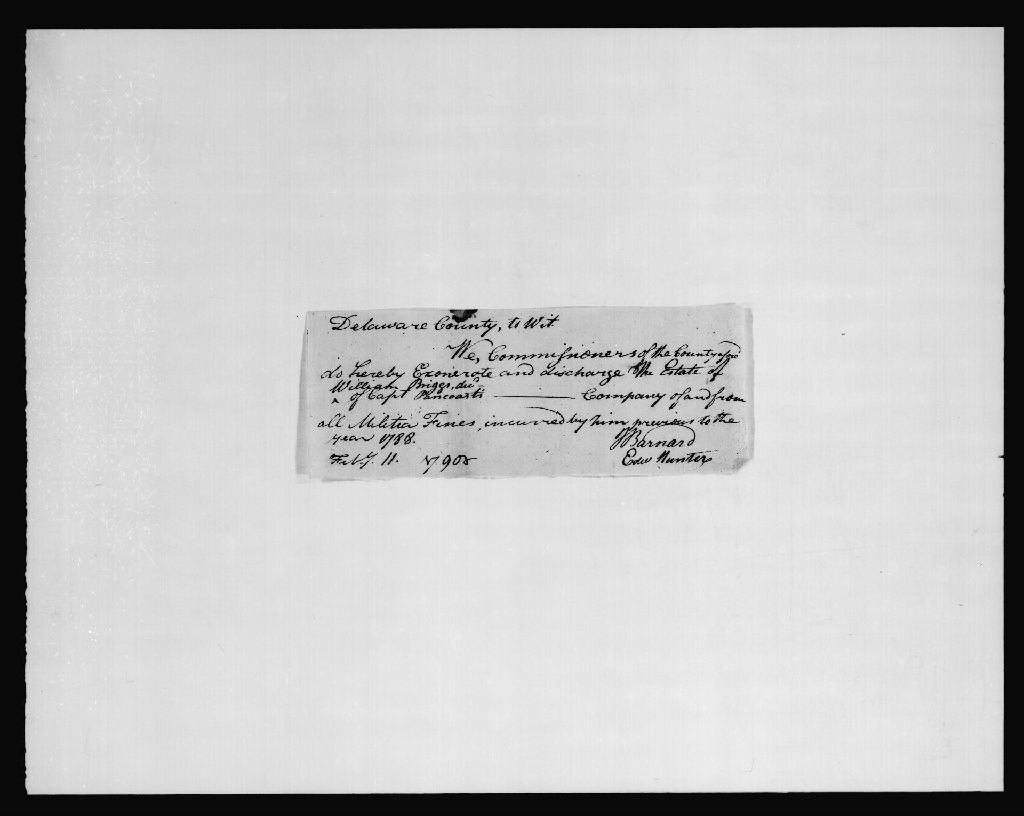 Delaware County, to Wit
We, Commissioners of the County afors^d
do hereby Exonerate and discharge the Estate of
William Briggs, dec^d
^ of Capt Pancoasts ——— Company of and from
all Militia Fines, incurred by him previous to the
year 1788.
Feb^y. 11. 1790
Barnard
Edw Hunter